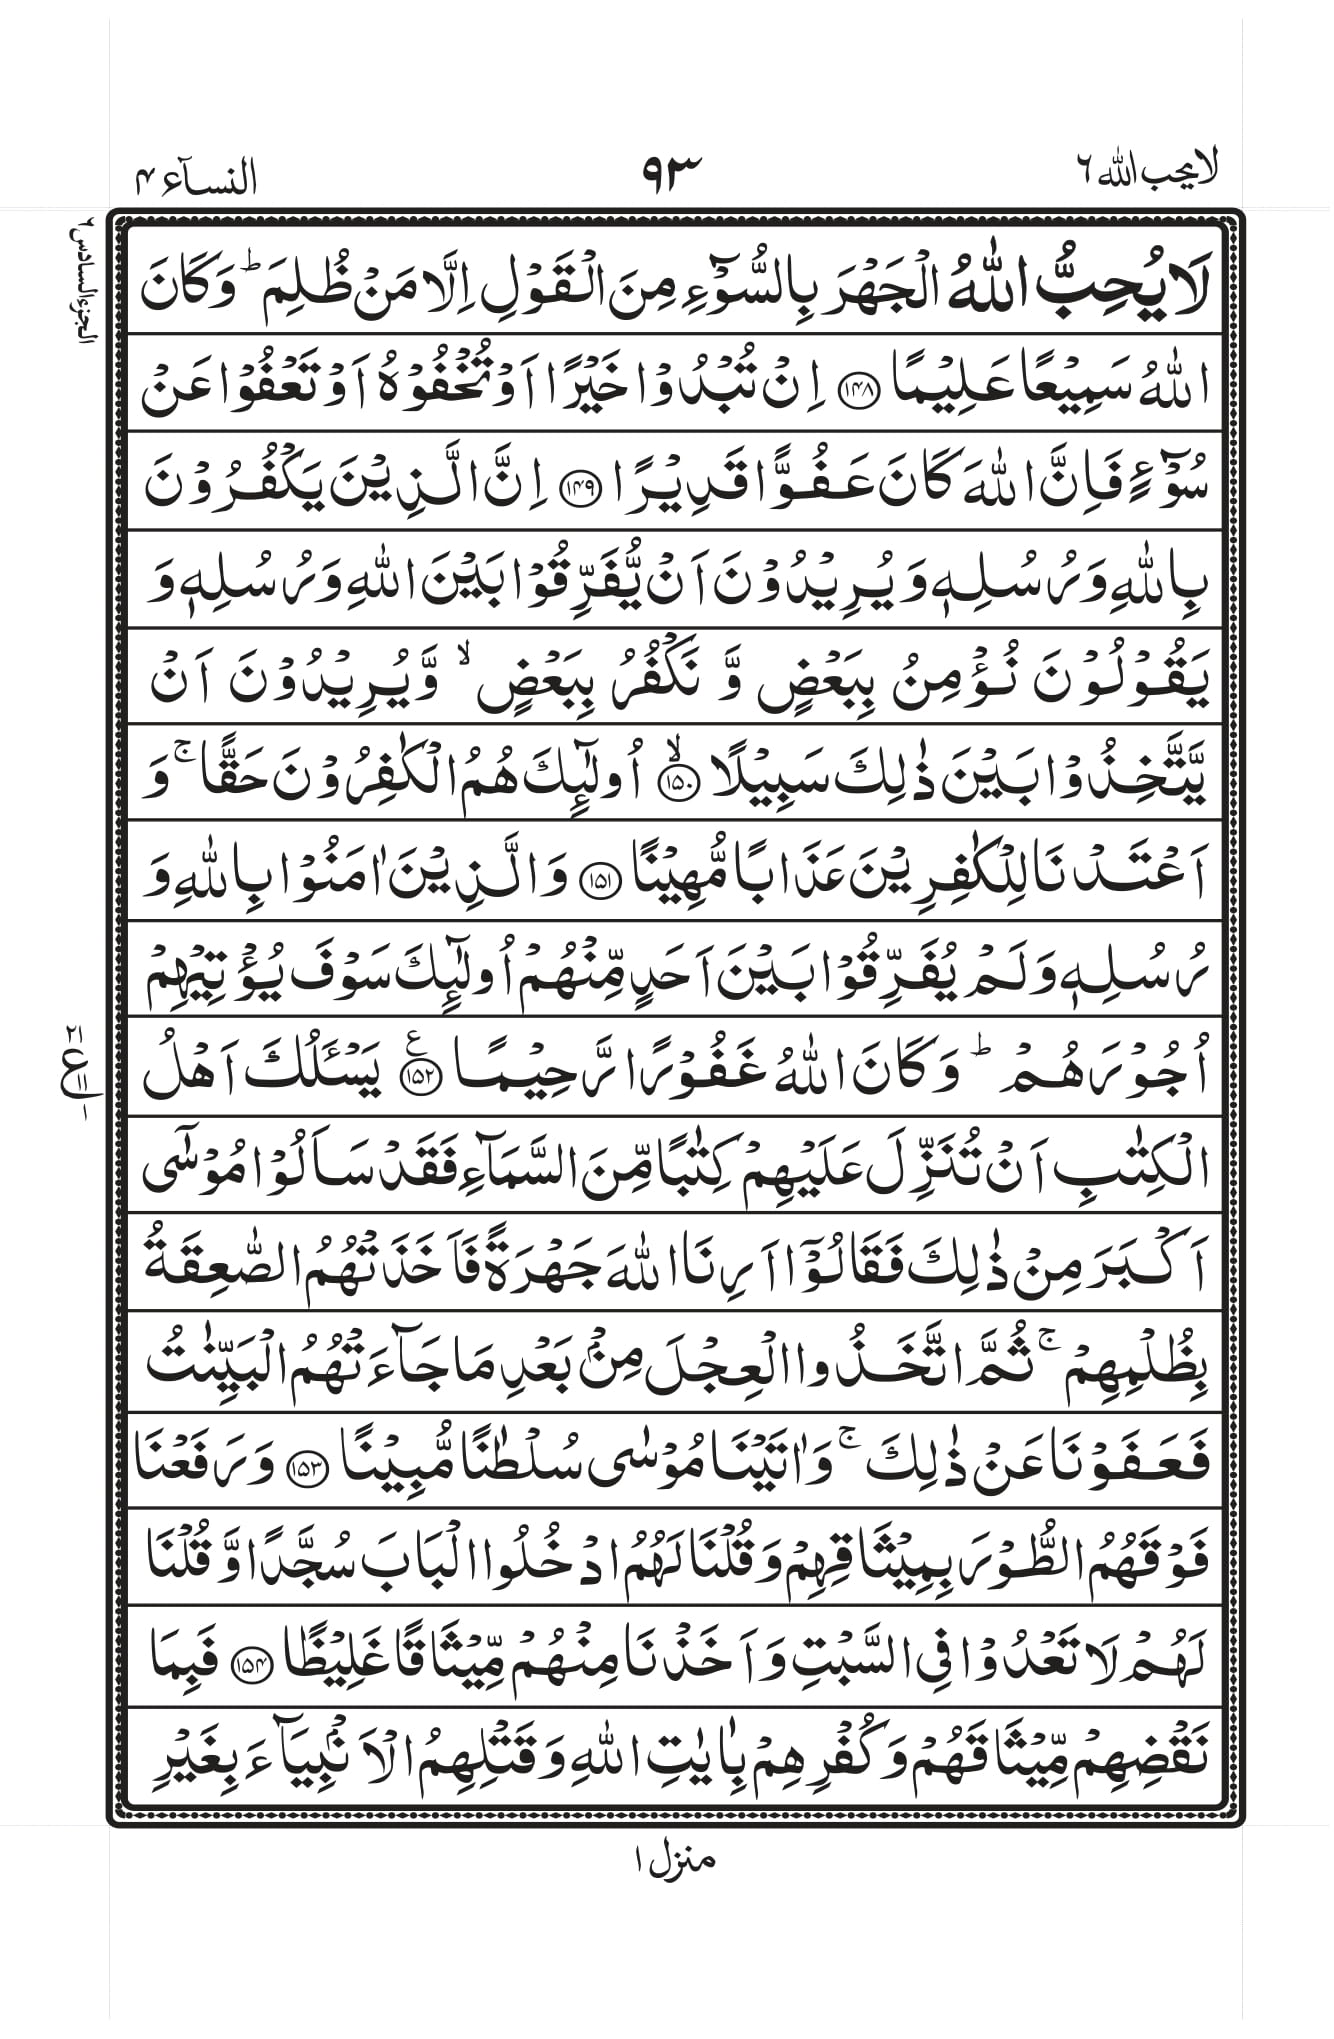 لايحب الله ٦
٩٣
النسآء ٤
الجزء السادس ٦
لَا يُحِبُّ اللّٰهُ الْجَهْرَ بِالسُّوْٓءِ مِنَ الْقَوْلِ اِلَّا مَنْ ظُلِمَ ؕ وَكَانَ
اللّٰهُ سَمِيْعًا عَلِيْمًا ﴿۱۴۸﴾ اِنْ تُبْدُوْا خَيْرًا اَوْ تُخْفُوْهُ اَوْ تَعْفُوْا عَنْ
سُوْٓءٍ فَاِنَّ اللّٰهَ كَانَ عَفُوًّا قَدِيْرًا ﴿۱۴۹﴾ اِنَّ الَّذِيْنَ يَكْفُرُوْنَ
بِاللّٰهِ وَرُسُلِهٖ وَيُرِيْدُوْنَ اَنْ يُّفَرِّقُوْا بَيْنَ اللّٰهِ وَرُسُلِهٖ وَ
يَقُوْلُوْنَ نُؤْمِنُ بِبَعْضٍ وَّ نَكْفُرُ بِبَعْضٍ ۙ وَّيُرِيْدُوْنَ اَنْ
يَّتَّخِذُوْا بَيْنَ ذٰلِكَ سَبِيْلًا ۙ﴿۱۵۰﴾ اُولٰٓئِكَ هُمُ الْكٰفِرُوْنَ حَقًّا ۚ وَ
اَعْتَدْنَا لِلْكٰفِرِيْنَ عَذَابًا مُّهِيْنًا ﴿۱۵۱﴾ وَالَّذِيْنَ اٰمَنُوْا بِاللّٰهِ وَ
رُسُلِهٖ وَلَمْ يُفَرِّقُوْا بَيْنَ اَحَدٍ مِّنْهُمْ اُولٰٓئِكَ سَوْفَ يُؤْتِيْهِمْ
اُجُوْرَهُمْ ؕ وَكَانَ اللّٰهُ غَفُوْرًا رَّحِيْمًا ﴿۱۵۲﴾ ع يَسْـَٔلُكَ اَهْلُ
٢١ ع ١١ ١
الْكِتٰبِ اَنْ تُنَزِّلَ عَلَيْهِمْ كِتٰبًا مِّنَ السَّمَآءِ فَقَدْ سَاَلُوْا مُوْسٰٓى
اَكْبَرَ مِنْ ذٰلِكَ فَقَالُوْٓا اَرِنَا اللّٰهَ جَهْرَةً فَاَخَذَتْهُمُ الصّٰعِقَةُ
بِظُلْمِهِمْ ۚ ثُمَّ اتَّخَذُوا الْعِجْلَ مِنْۢ بَعْدِ مَا جَآءَتْهُمُ الْبَيِّنٰتُ
فَعَفَوْنَا عَنْ ذٰلِكَ ۚ وَاٰتَيْنَا مُوْسٰى سُلْطٰنًا مُّبِيْنًا ﴿۱۵۳﴾ وَرَفَعْنَا
فَوْقَهُمُ الطُّوْرَ بِمِيْثَاقِهِمْ وَقُلْنَا لَهُمُ ادْخُلُوا الْبَابَ سُجَّدًا وَّقُلْنَا
لَهُمْ لَا تَعْدُوْا فِى السَّبْتِ وَاَخَذْنَا مِنْهُمْ مِّيْثَاقًا غَلِيْظًا ﴿۱۵۴﴾ فَبِمَا
نَقْضِهِمْ مِّيْثَاقَهُمْ وَكُفْرِهِمْ بِاٰيٰتِ اللّٰهِ وَقَتْلِهِمُ الْاَنْۢبِيَآءَ بِغَيْرِ
منزل ١